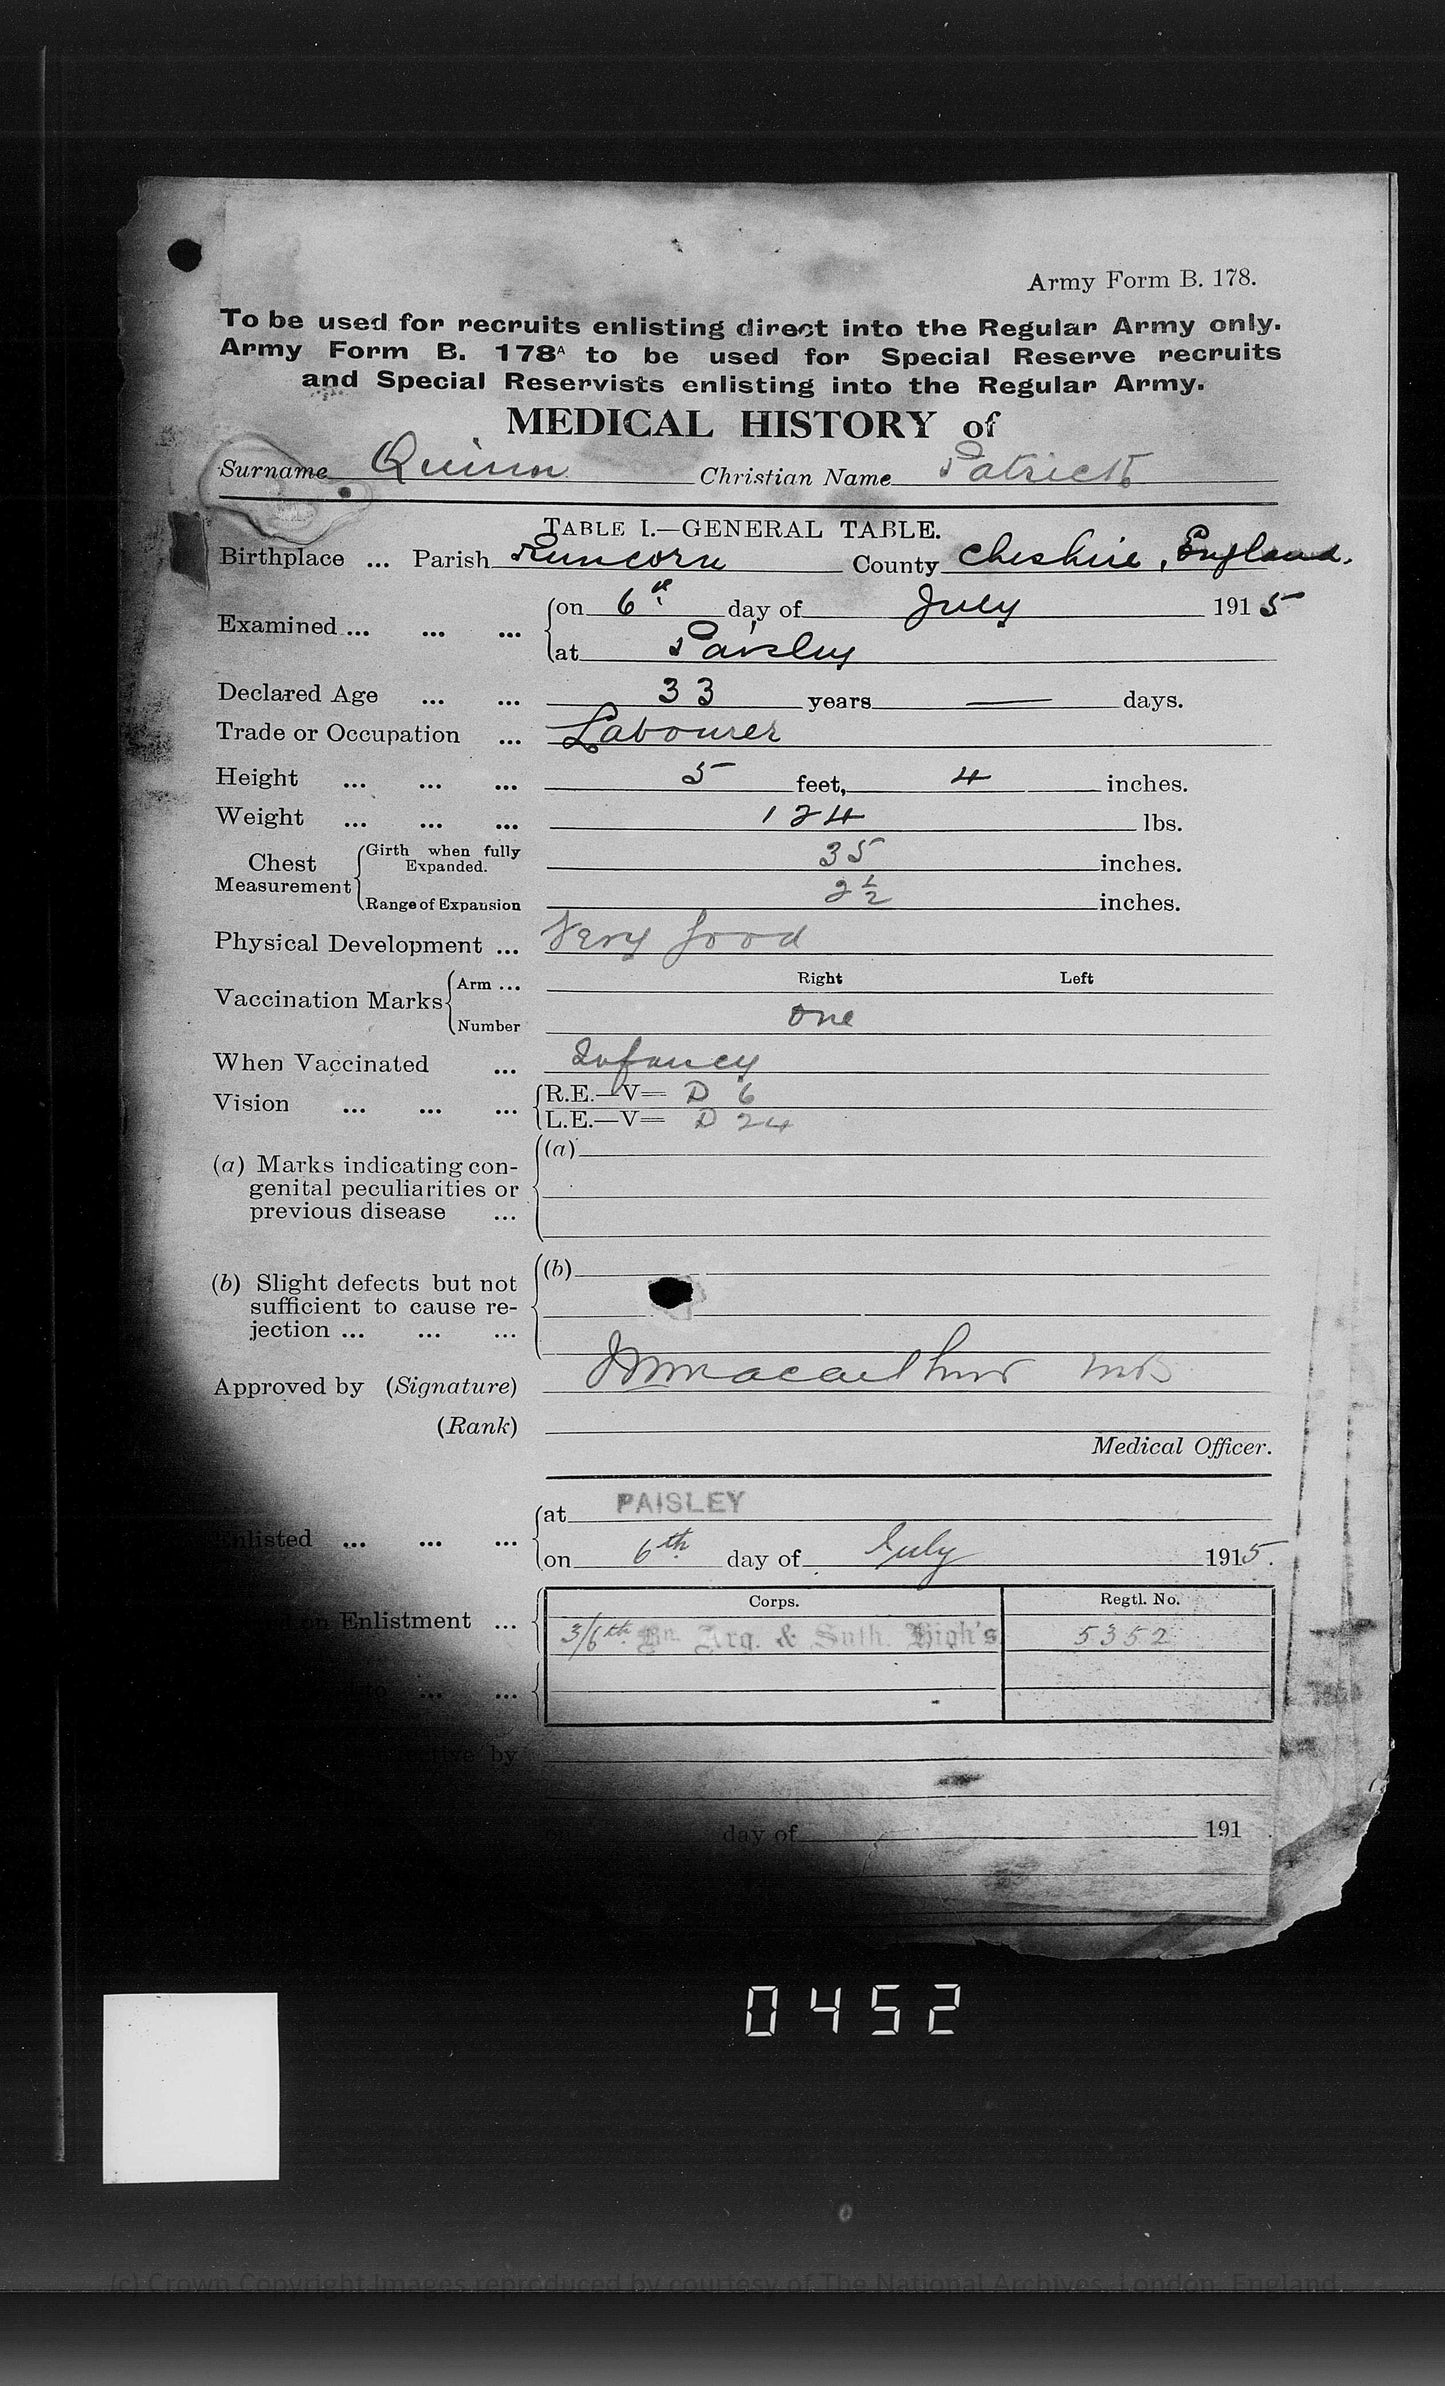 Army Form B. 178.
To be used for recruits enlisting direct into the Regular Army only.
Army Form B. 178A to be used for Special Reserve recruits
and Special Reservists enlisting into the Regular Army.
MEDICAL HISTORY of
Surname Quinn Christian Name Patrick
TABLE I.—GENERAL TABLE.
Birthplace ... Parish Runcorn County Cheshire, England.
Examined ... ... ... on 6th day of July 1915
at Paisley
Declared Age ... ... 33 years — days.
Trade or Occupation ... Labourer
Height ... ... ... 5 feet, 4 inches.
Weight ... ... ... 124 lbs.
Chest Measurement Girth when fully Expanded. 35 inches.
Range of Expansion 2½ inches.
Physical Development ... Very good
Right Left
Vaccination Marks Arm ...
Number One
When Vaccinated ... Infancy
Vision ... ... ... R.E.—V= D 6
L.E.—V= D 24
(a) Marks indicating con- (a)
genital peculiarities or
previous disease ...
(b) Slight defects but not (b)
sufficient to cause re-
jection ... ... ...
Approved by (Signature) Macarthur MB
(Rank)
Medical Officer.
Enlisted ... ... ... at PAISLEY
on 6th day of July 1915.
Corps. Regtl. No.
on Enlistment ... 3/6th Bn. Arg. & Suth. High's 5352
to ... ...
by
day of 191
0452
(c) Crown Copyright Images reproduced by courtesy of The National Archives, London, England.